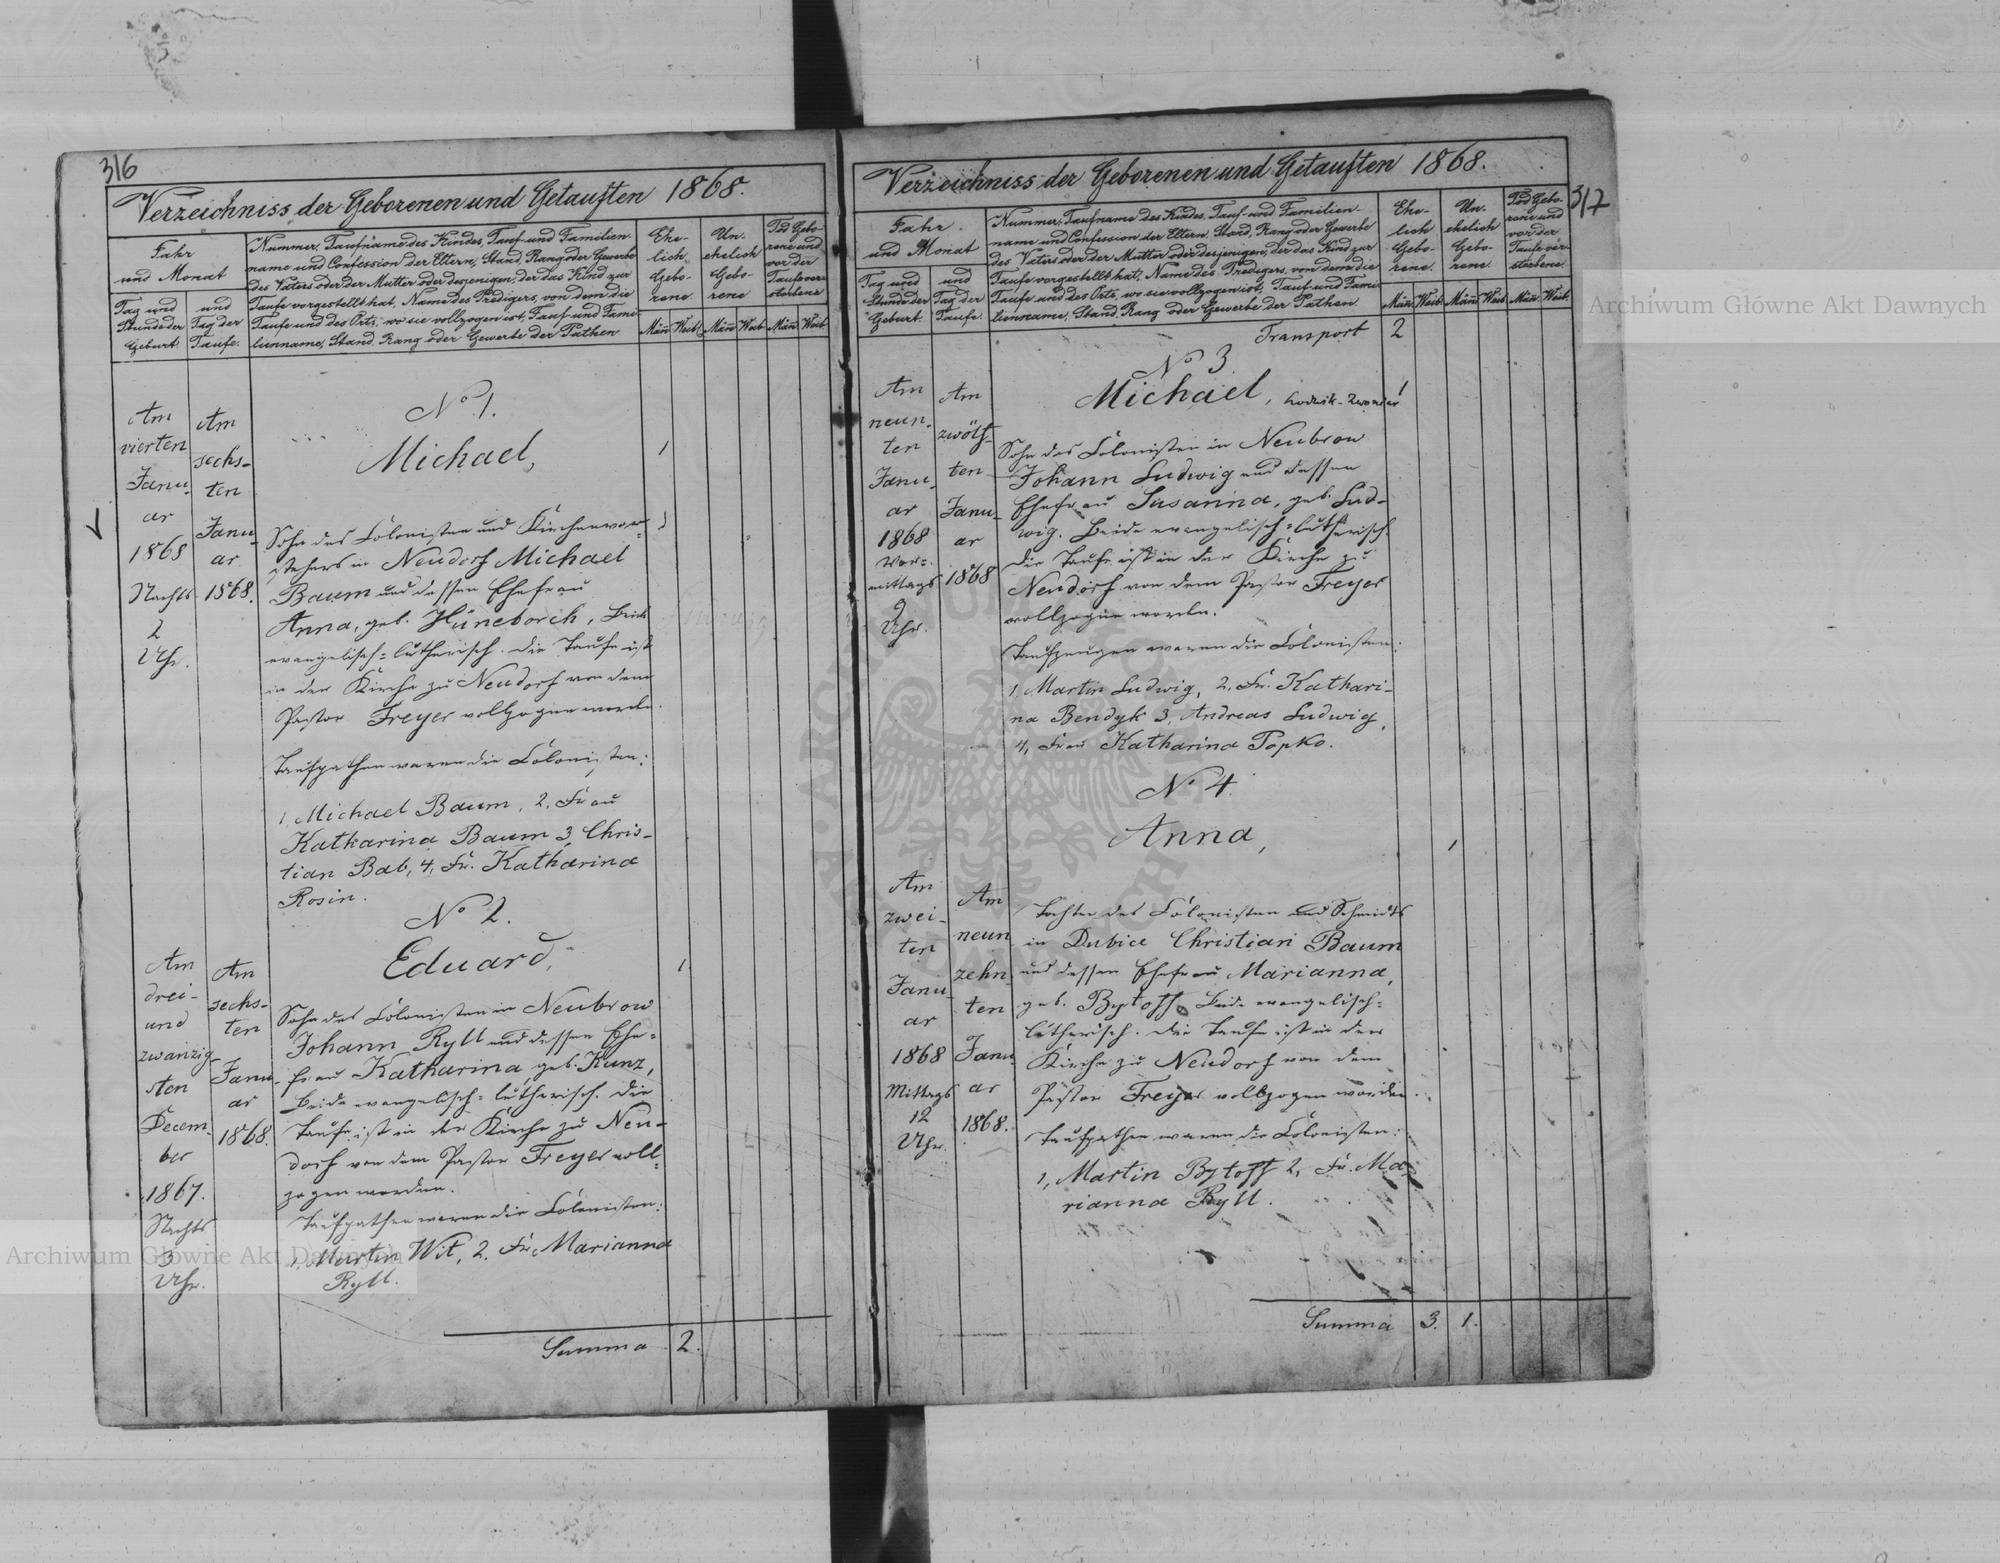 316
Verzeichniss der Geborenen und Getauften 1868.
Jahr
und Monat
Tag und
Stunde der
Geburt.
und
Tag der
Taufe.
Nummer, Taufname des Kindes, Tauf- und Familien-
name und Confession der Eltern, Stand, Rang oder Gewerbe
des Vaters oder der Mutter oder desjenigen, der das Kind zur
Taufe vorgestellt hat, Name des Predigers, von dem die
Taufe und des Orts, wo sie vollzogen ist, Tauf- und Fami-
lienname, Stand, Rang oder Gewerbe der Pathen
Ehe-
lich
Gebo-
rene.
Un-
ehelich
Gebo-
rene
Tod Gebo-
rene und
vor der
Taufe ver-
storbene
Män Weib. Män Weib. Män Weib.
Am
vierten
Janu-
ar
1868
Nachts
2
Uhr.
Am
sechs-
ten
Janu-
ar
1868.
No 1.
Michael,
1
Sohn des Colonisten und Kirchenvor-
stehers in Neudorf Michael
Baum und dessen Ehefrau
Anna, geb. Hüneborch, Beide
evangelisch-lutherisch. Die Taufe ist
in der Kirche zu Neudorf von dem
Pastor Freyer vollzogen worden.
Taufpathen waren die Colonisten:
1, Michael Baum, 2, Frau
Katharina Baum 3, Chris-
tian Bab, 4, Fr. Katharina
Rosin.
Am
drei-
und
zwanzig-
sten
Decem-
ber
1867.
Nachts
3
Uhr.
Am
sechs-
ten
Janu-
ar
1868.
No 2.
Eduard,
1.
Sohn des Colonisten in Neubrow
Johann Ryll und dessen Ehe-
frau Katharina, geb. Kunz,
Beide evangelisch-lutherisch. Die
Taufe ist in der Kirche zu Neu-
dorf von dem Pastor Freyer voll-
zogen worden.
Taufpathen waren die Colonisten:
1, Martin Wit, 2. Fr. Marianna
Ryll.
Summa 2.
317
Verzeichniss der Geborenen und Getauften 1868.
Jahr
und Monat
Tag und
Stunde der
Geburt.
und
Tag der
Taufe.
Nummer, Taufname des Kindes, Tauf- und Familien-
name und Confession der Eltern, Stand, Rang oder Gewerbe
des Vaters oder der Mutter oder desjenigen, der das Kind zur
Taufe vorgestellt hat, Name des Predigers, von dem die
Taufe und des Orts, wo sie vollzogen ist, Tauf- und Fami-
lienname, Stand, Rang oder Gewerbe der Pathen.
Ehe-
lich
Gebo-
rene.
Un-
ehelich
Gebo-
rene.
Tod Gebo-
rene und
vor der
Taufe ver-
storbene.
Män Weib. Män Weib. Män Weib.
Transport 2
Am
neun-
ten
Janu-
ar
1868
Vor-
mittags
9
Uhr.
Am
zwölf-
ten
Janu-
ar
1868
No 3
Michael,
1
Sohn des Colonisten in Neubrow
Johann Ludwig und dessen
Ehefrau Susanna, geb. Lud-
wig. Beide evangelisch-lutherisch.
Die Taufe ist in der Kirche zu
Neudorf von dem Pastor Freyer
vollzogen worden.
Taufzeugen waren die Colonisten:
1, Martin Ludwig, 2, Fr. Kathari-
na Bendyk 3, Andreas Ludwig,
4, Frau Katharina Popko.
Am
zwei-
ten
Janu-
ar
1868
Mittags
12
Uhr.
Am
neun
zehn-
ten
Janu-
ar
1868.
No 4.
Anna,
1
Tochter des Colonisten und Schmidts
in Dubice Christian Baum
und dessen Ehefrau Marianna,
geb. Bytoff. Beide evangelisch-
lutherisch. Die Taufe ist in der
Kirche zu Neudorf von dem
Pastor Freyer vollzogen worden.
Taufpathen waren die Colonisten:
1, Martin Bytoff 2, Fr. Ma-
rianna Ryll.
Summa 3. 1.
Archiwum Główne Akt Dawnych
Archiwum Główne Akt Dawnych